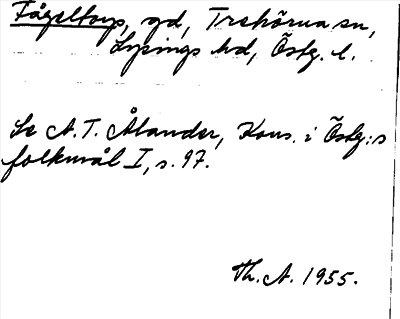 Fågeltorp, gd, Trehörna sn,
Lysings hd, Östg. l.
Se A. T. Ålander, Kons. i Östg:s
folkmål I, s. 97.
Th. A. 1955.